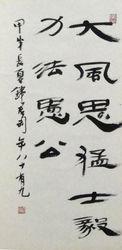 大風思猛士毅
力法愚公
甲午長夏年八十有九